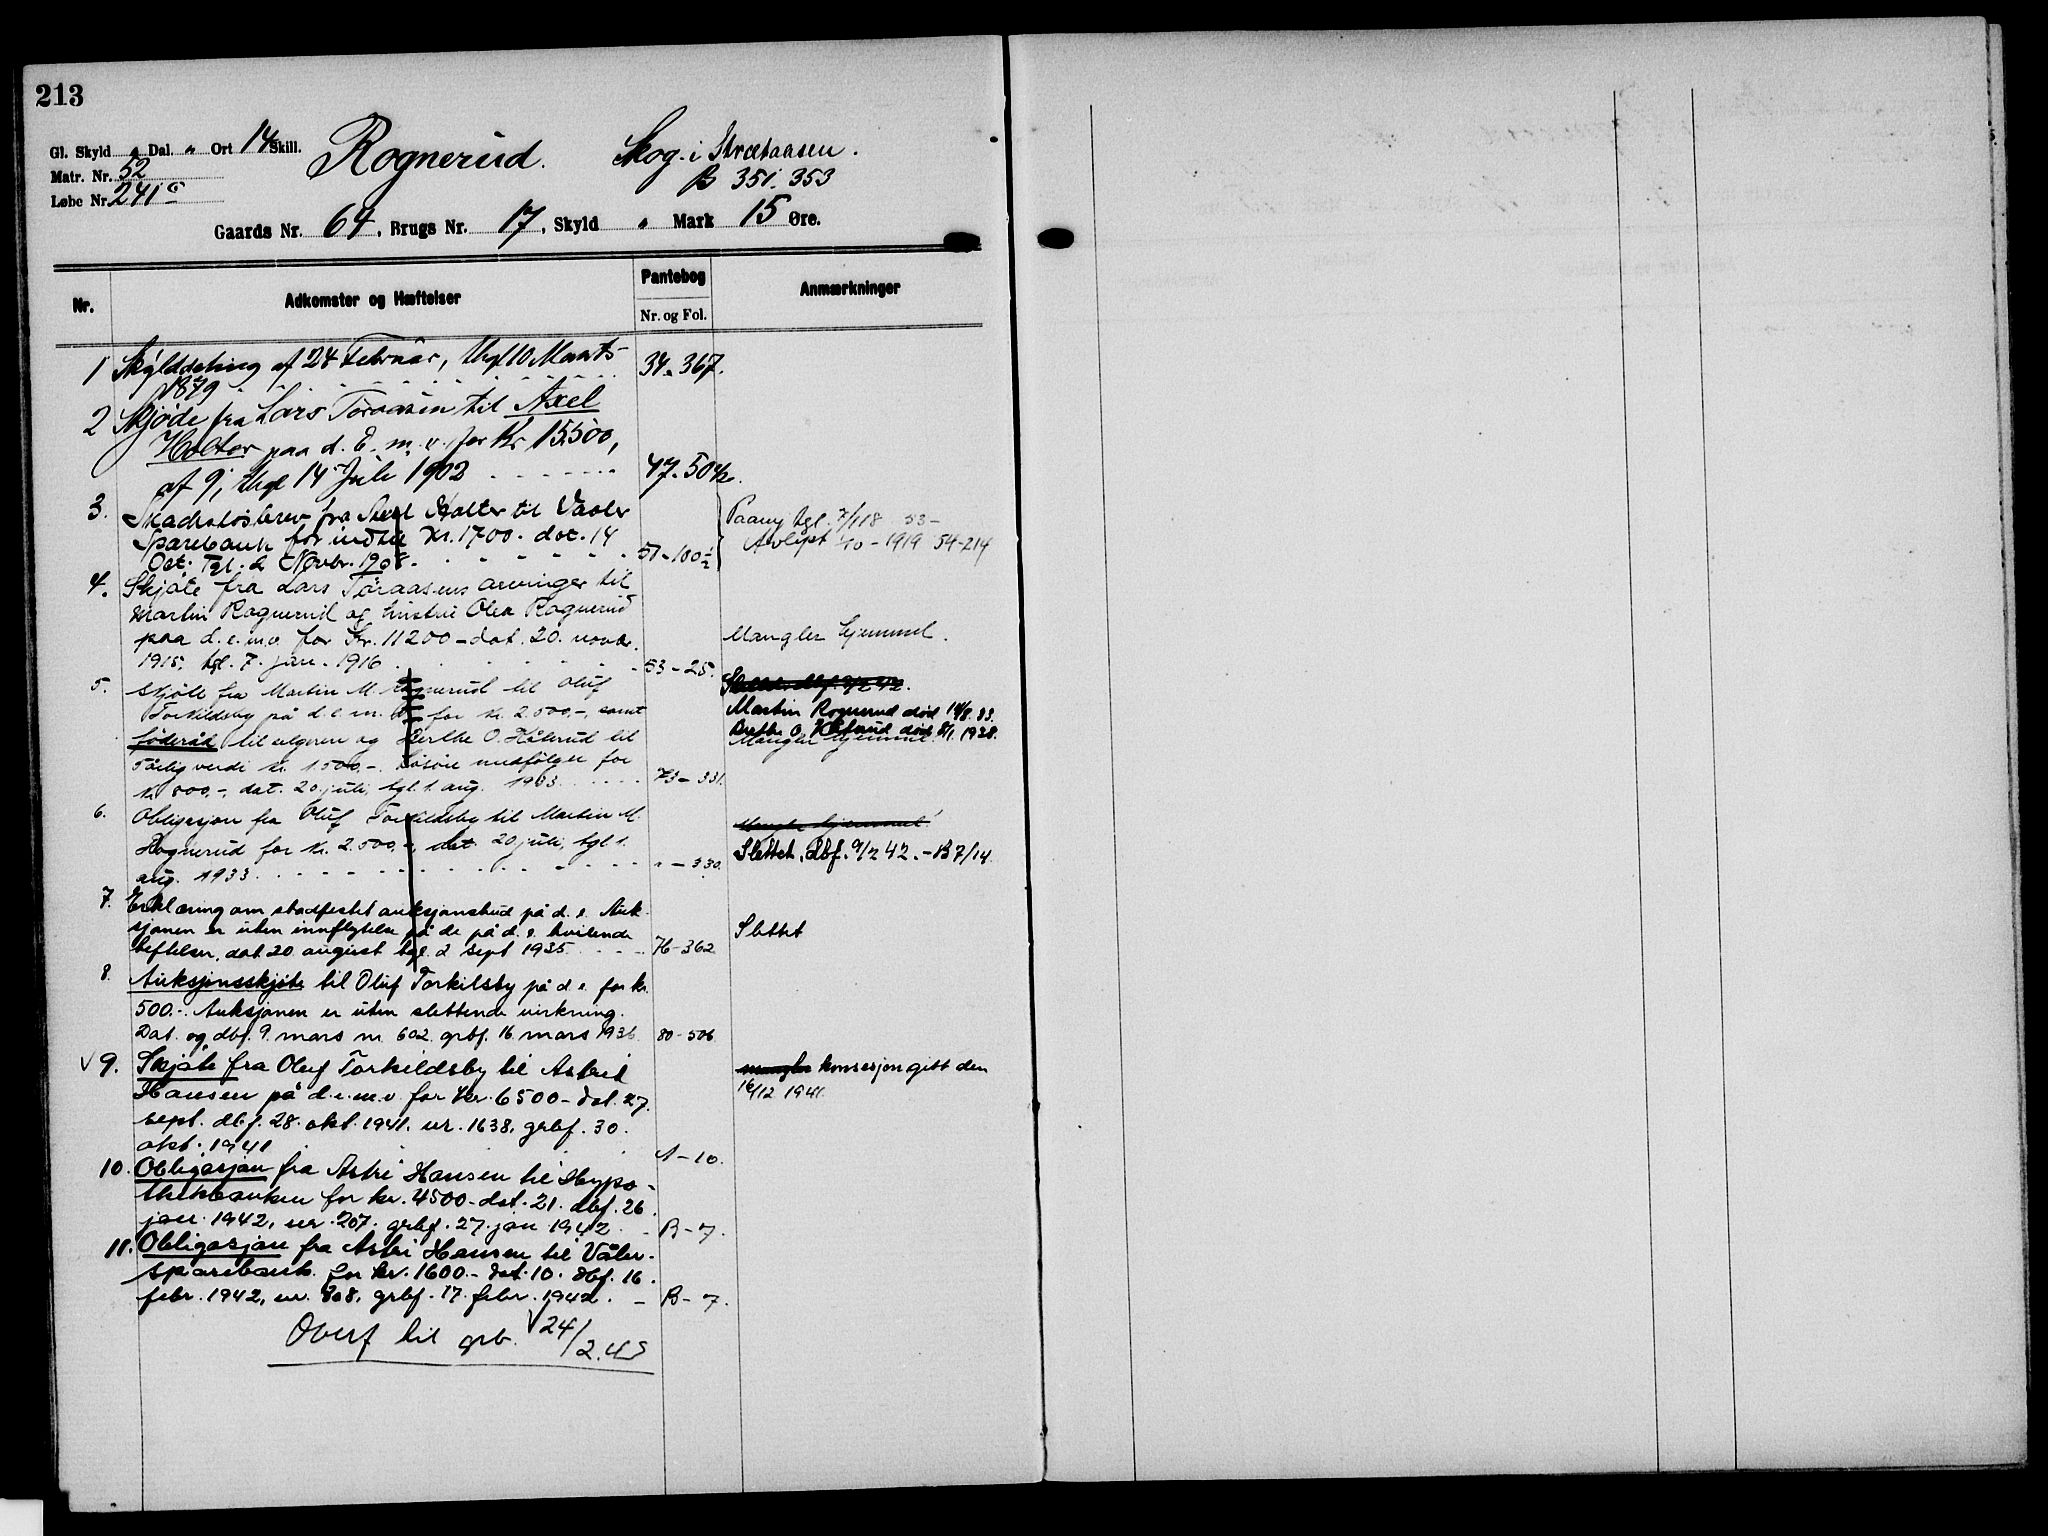 213
Gl. Skyld " Dal. " Ort 14 Skill.
Matr. Nr. 52
Løbe Nr. 241 c
Rognerud. Skog i Strætaasen.
B 351. 353
Gaards Nr. 64, Brugs Nr. 17, Skyld " Mark 15 Øre.
Nr. Adkomster og Hæftelser Pantebog Nr. og Fol. Anmærkninger
1 Skylddeling af 24 Februar, thgl 10 Marts
1879 34-367.
2 Skjøde fra Lars Toraasen til Axel
Holter paa d. E. m. v. for Kr 15500,
af 9, thgl 14 Juli 1902 47-504
3. Skadesløsbrev fra Axel Holter til Vaaler
Sparebank for indtil Kr. 1700. dat. 14
Oct. Tgl. 2 Novbr. 1908. 51-100
Paany tgl. 7/1 18 53-
Avlyst 1/10-1919 54-214
4. Skjøte fra Lars Toraasens arvinger til
Martin Rognerud og hustru Olea Rognerud
paa d.e.m.v. for Kr. 11200 - dat. 20. novbr.
1915, tgl. 7. jan. 1916 53-25.
Mangler hjemmel.
5. Skjøte fra Martin M. Rognerud til Oluf
Torkildsby på d.e.m.v. for kr. 2.500,-, samt
føderåd til selgeren og Berthe O. Håterud til
5årlig verdi kr. 1500,-. Løsøre medfølger for
kr. 800,-, dat. 20. juli, tgl. 1. aug. 1933. 73-331.
Slettet dbf. 9/2 42.
Martin Rognerud død 14/8.33.
Berthe O. Håterud død 2/1. 1938.
Mangler hjemmel.
6. Obligasjon fra Oluf Torkildsby til Martin M.
Rognerud for kr. 2.500,-, dat 20 juli, tgl 1.
aug. 1933. "-330.
Mangler hjemmel.
Slettet, dbf. 9/2 42. - B7/14.
7. Erklæring om stadfestet auksjonsbud på d. e. Auk-
sjonen er uten innflytelse på de på d. e. hvilende
heftelser, dat 20 august tgl 2 sept 1935. 76-362
Slettet
8. Auksjonsskjøte til Oluf Torkilsby på d. e. for kr.
500.-. Auksjonen er uten slettende virkning.
Dat. og dbf. 9. mars nr 602. grbf. 16 mars 1936 80-506.
√ 9. Skjøte fra Oluf Torkildsby til Astrid
Hansen på d.e.m.v. for kr. 6500 - dat. 27.
sept. dbf. 28. okt. 1941. nr. 1638, grbf. 30.
okt. 1941 A-10.
mangler konsesjon gitt den
16/12 1941.
10. Obligasjon fra Astri Hansen til Hypo-
thekbanken for kr. 4500 - dat. 21. dbf. 26.
jan. 1942, nr. 207. grbf. 27. jan 1942. - B-7.
11. Obligasjon fra Astri Hansen til Våler-
sparebank for kr. 1600.- dat. 10. dbf. 16.
febr. 1942, nr. 308, grbf. 17. febr. 1942. - B-7.
Overf til grb. √ 24/2.45